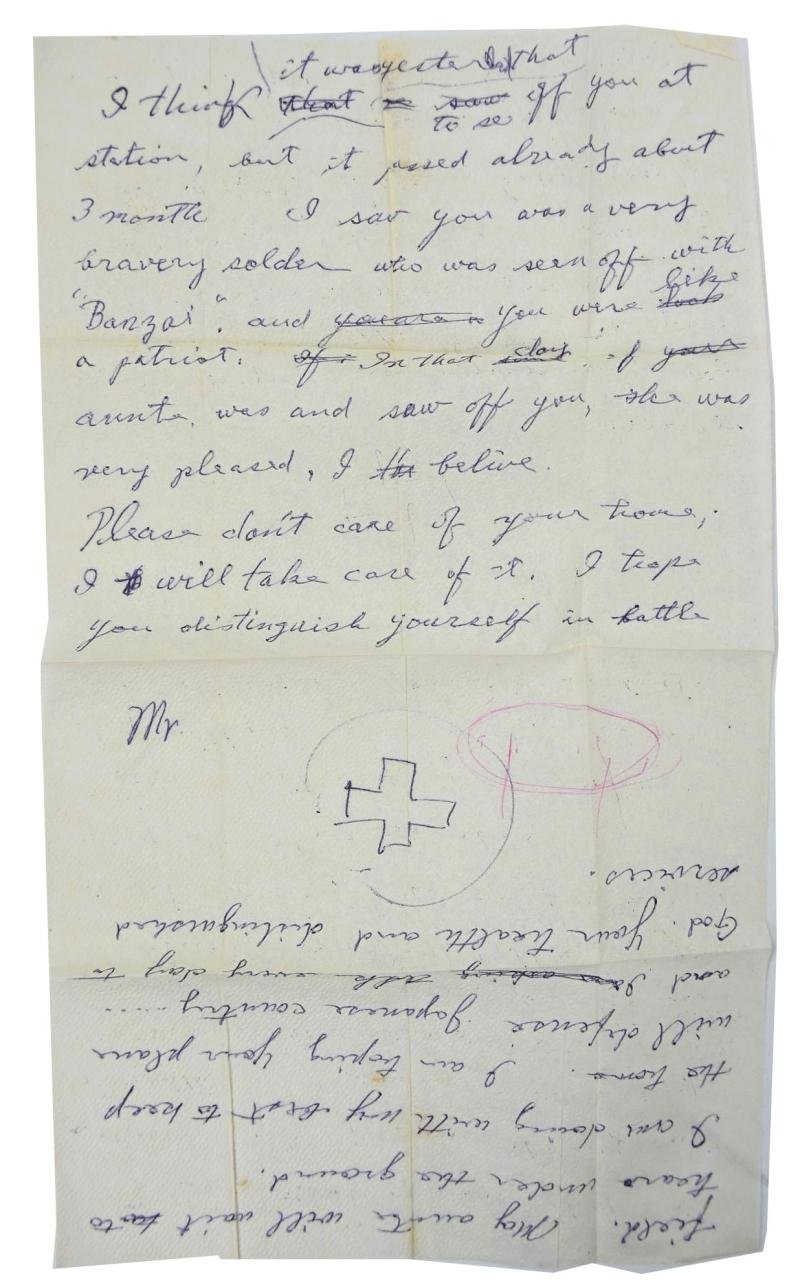 it was yesterday that
I think that saw off you at
to see
station, but it passed already about
3 month I saw you was a very
bravery solder who was seen off with
like
"Banzai". and you are a you were look
a patriot. If In that day if your
aunte, was and saw off you, she was
very pleased, I th belive.
Please don't care of your home,
I will take care of it. I hope
you distinguish yourself in battle
Mr.
field. My aunte will wait to
hears under the ground.
I am doing with my best to keep
the home. I am hoping your plane
will defense Japanese country.....
and I asking ask every day to
God. Your health and distinguished
services.